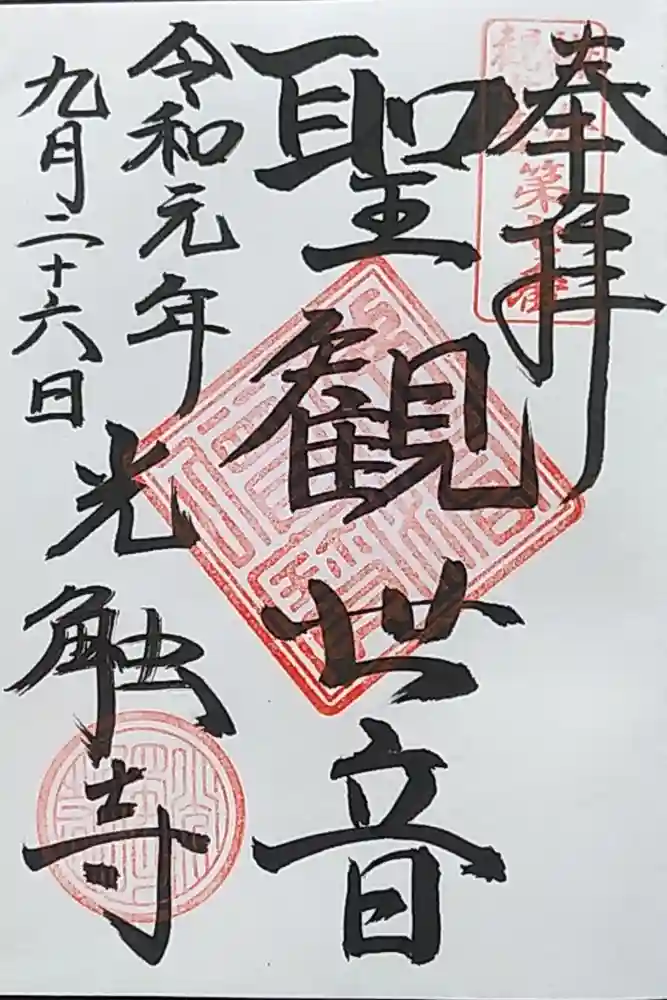 奉拝
第七番
聖観世音
令和元年
九月二十六日
光触寺